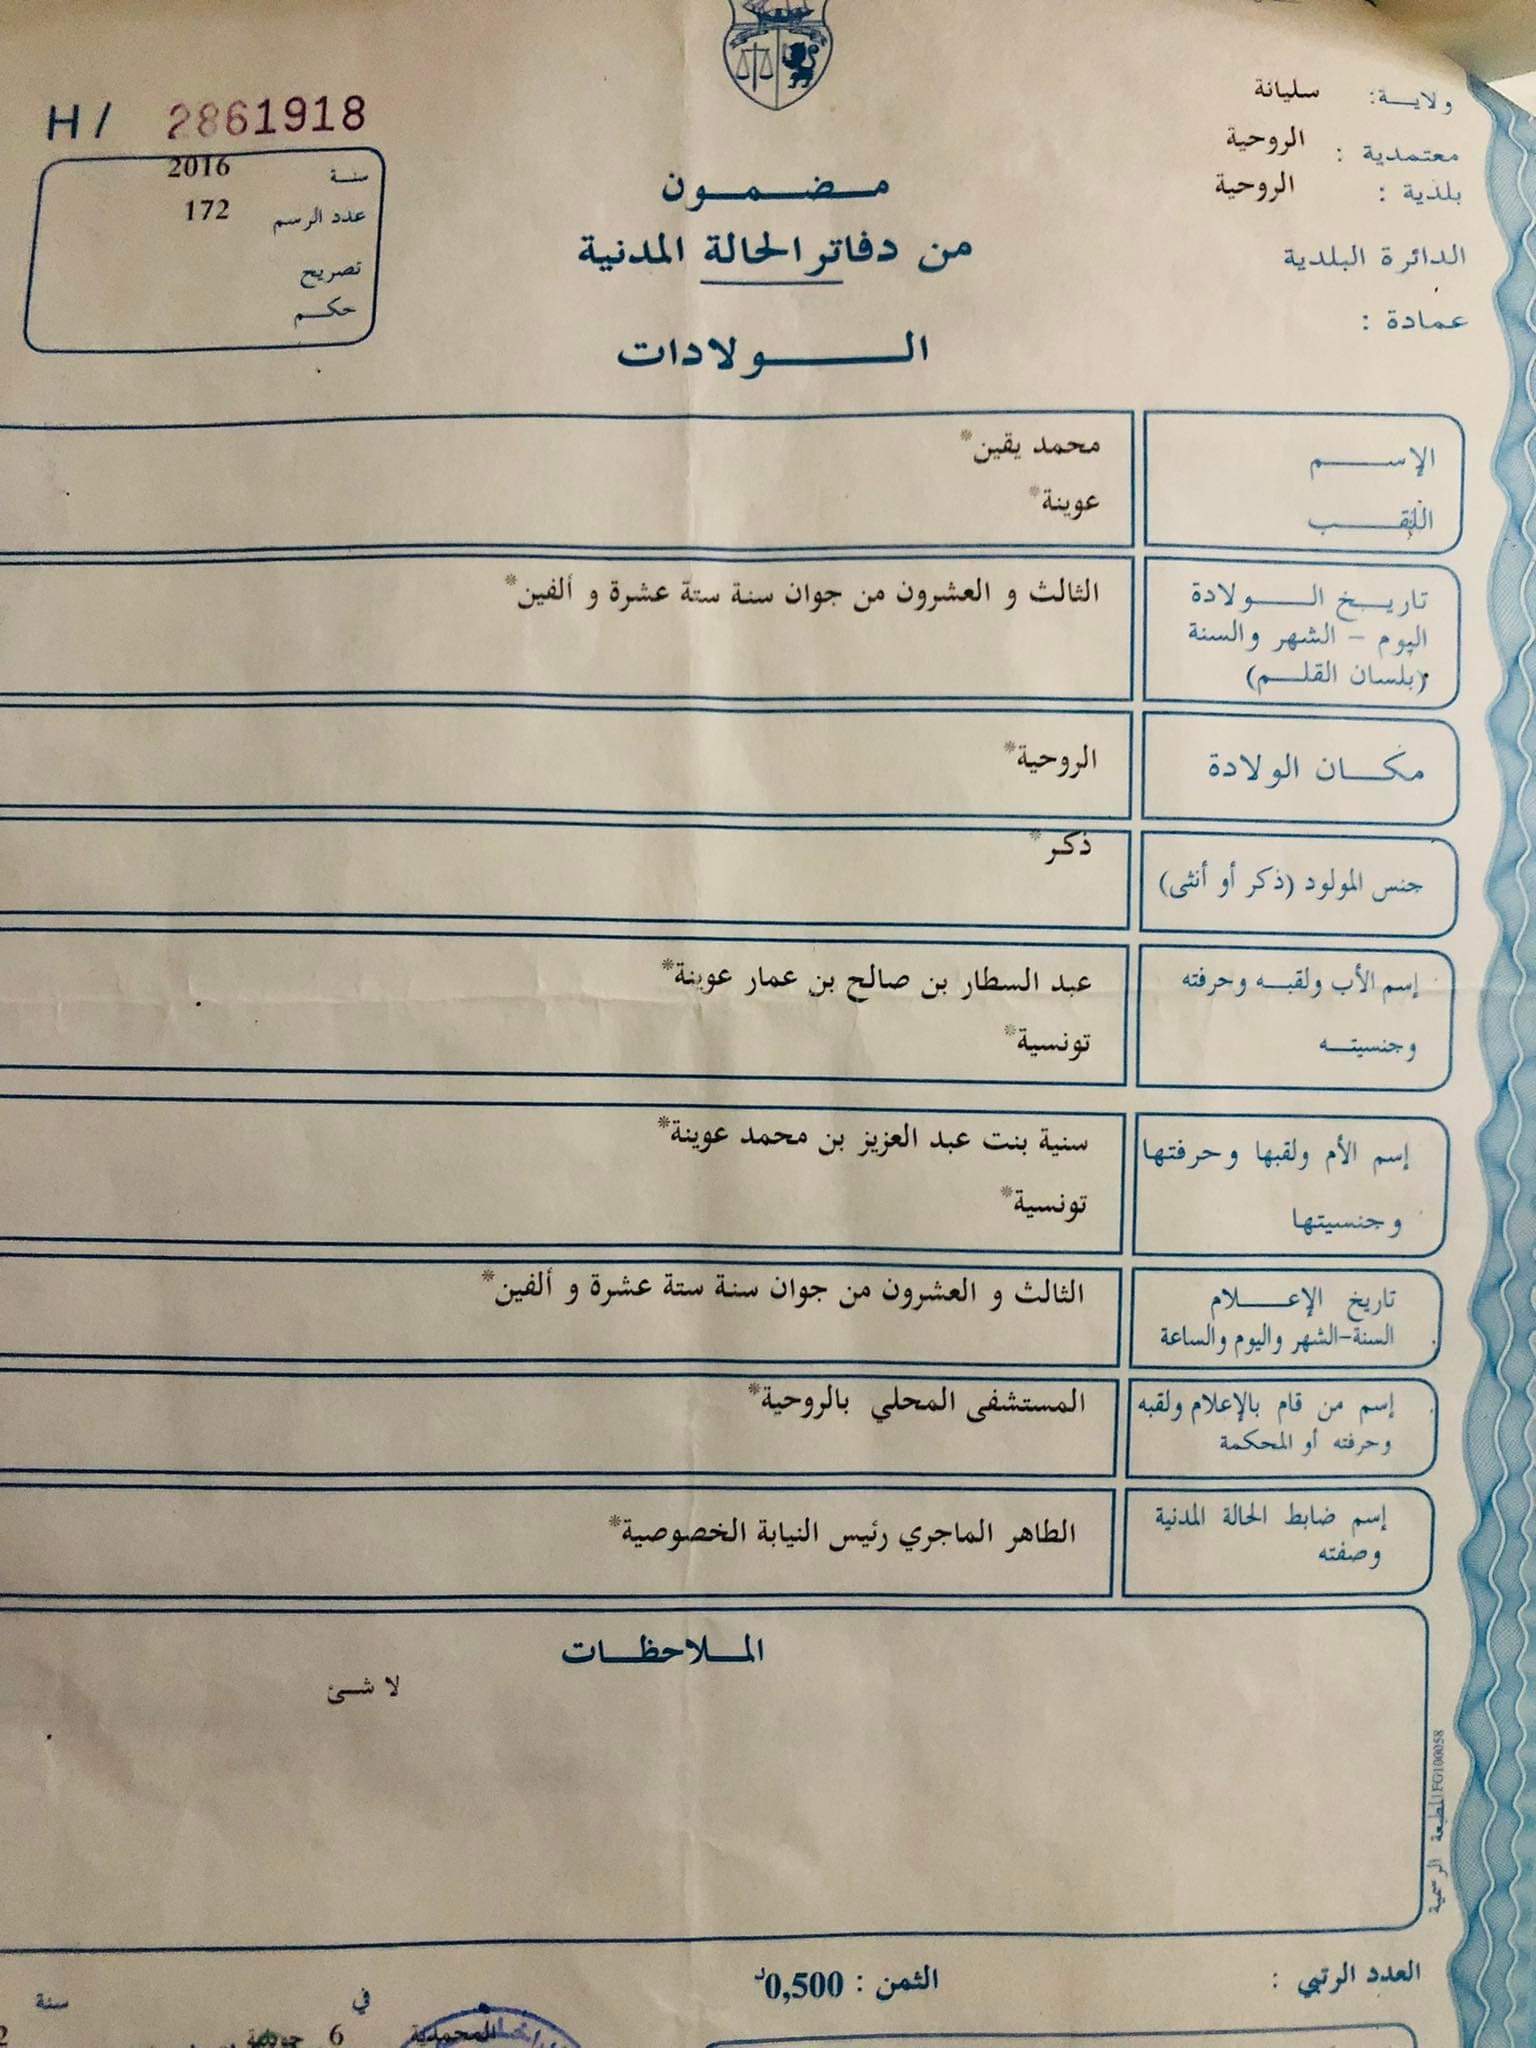 ولاية: سليانة
معتمدية : الروحية
بلدية : الروحية
الدائرة البلدية
عمادة :
H/ 2861918
سنة 2016
عدد الرسم 172
تصريح
حكم
مضمون
من دفاتر الحالة المدنية
الولادات
الإسم محمد يقين*
اللقب عوينة*
تاريخ الولادة الثالث و العشرون من جوان سنة ستة عشرة و ألفين*
اليوم - الشهر والسنة
(بلسان القلم)
مكان الولادة الروحية*
جنس المولود (ذكر أو أنثى) ذكر*
إسم الأب ولقبه وحرفته عبد السطار بن صالح بن عمار عوينة*
وجنسيته تونسية*
إسم الأم ولقبها وحرفتها سنية بنت عبد العزيز بن محمد عوينة*
وجنسيتها تونسية*
تاريخ الإعلام الثالث و العشرون من جوان سنة ستة عشرة و ألفين*
السنة-الشهر واليوم والساعة
إسم من قام بالإعلام ولقبه المستشفى المحلي بالروحية*
وحرفته أو المحكمة
إسم ضابط الحالة المدنية الطاهر الماجري رئيس النيابة الخصوصية*
وصفته
الملاحظات
لا شئ
المطبعة الرسمية FG100058
العدد الرتبي : الثمن : 0,500د
في سنة
المحمدية 6